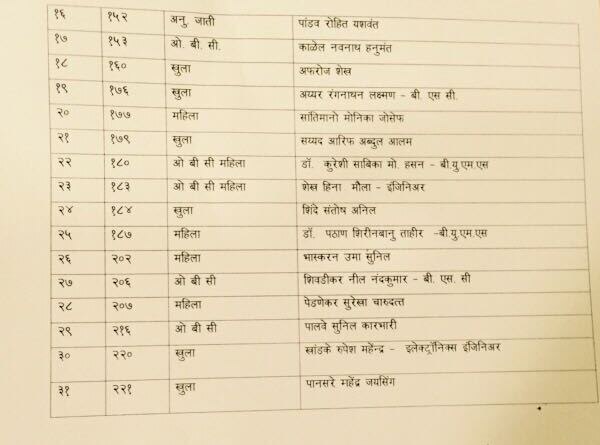 १६ १५२ अनु. जाती पांडव रोहित यशवंत
१७ १५३ ओ. बी. सी. काळेल नवनाथ हनुमंत
१८ १६० खुला अफरोज शेख
१९ १७६ खुला अय्यर रंगनाथन लक्ष्मण - बी. एस सी.
२० १७७ महिला सांतिमानो मोनिका जोसेफ
२१ १७९ खुला सय्यद आरिफ अब्दुल आलम
२२ १८० ओ बी सी महिला डॉ. कुरेशी साबिका मो. हसन - बी.यु.एम.एस
२३ १८३ ओ बी सी महिला शेख हिना मौला - इंजिनिअर
२४ १८४ खुला शिंदे संतोष अनिल
२५ १८७ महिला डॉ. पठाण शिरीनबानु ताहीर -बी.यु.एम.एस
२६ २०२ महिला भास्करन उमा सुंनिल
२७ २०६ ओ बी सी शिवडीकर नील नंदकुमार - बी. एस. सी
२८ २०७ महिला पेडणेकर सुरेखा चारुदत्त
२९ २१६ ओ बी सी पालवे सुनिल कारभारी
३० २२० खुला खांडके रुपेश महेंन्द्र - इलेक्ट्रॉनिक्स इंजिनिअर
३१ २२१ खुला पानसरे महेंद्र जयसिंग